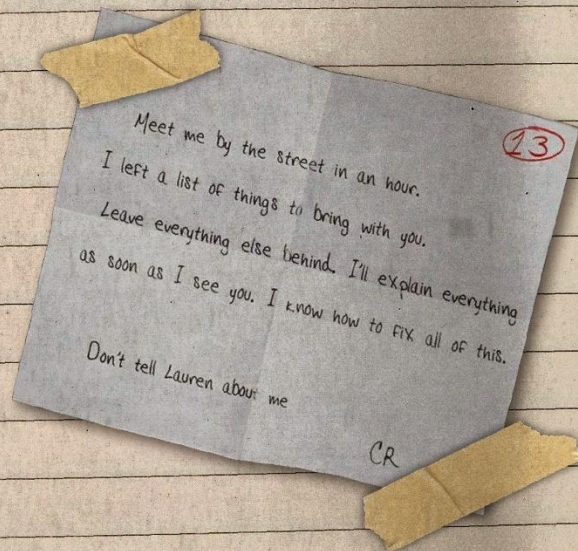 13
Meet me by the street in an hour.
I left a list of things to bring with you.
Leave everything else behind. I'll explain everything
as soon as I see you. I know how to fix all of this.
Don't tell Lauren about me
CR